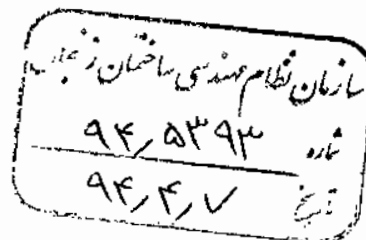 سازمان نظام مهندسی ساختمان زنجان
شماره ۹۴٫۵۳۹۳
تاریخ ۹۴٫۴٫۷